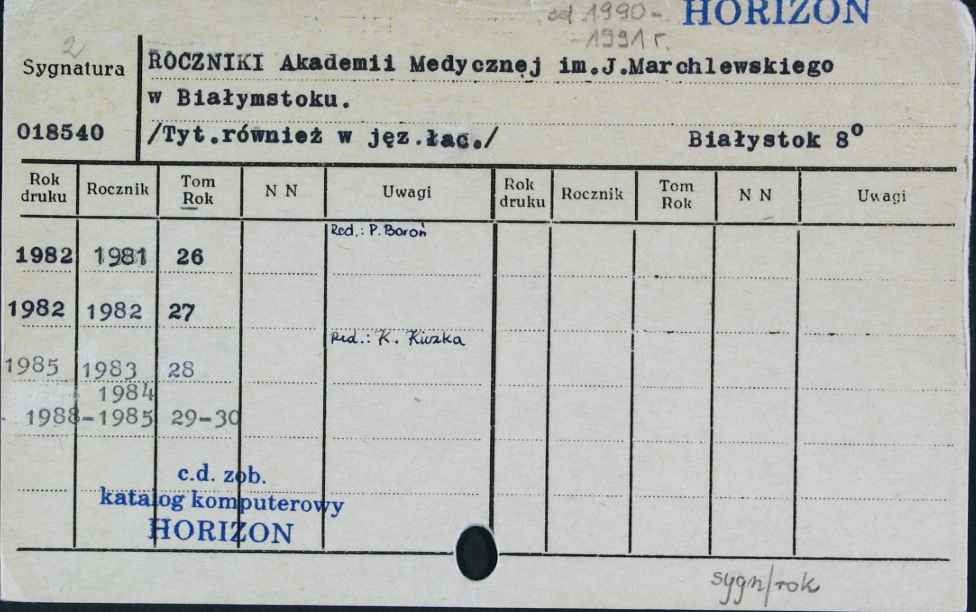 od 1990- HORIZON
-1991 r.
2
Sygnatura
018540
ROCZNIKI Akademii Medycznej im.J.Marchlewskiego
w Białymstoku.
/Tyt.również w jęz.łac./ Białystok 8º
Rok druku Rocznik Tom Rok N N Uwagi Rok druku Rocznik Tom Rok N N Uwagi
Red.: P. Boroń
1982 1981 26
1982 1982 27
Red.: K. Kiszka
1985 1983 28
1984
1988-1985 29-30
c.d. zob.
katalog komputerowy
HORIZON
sygn/rok